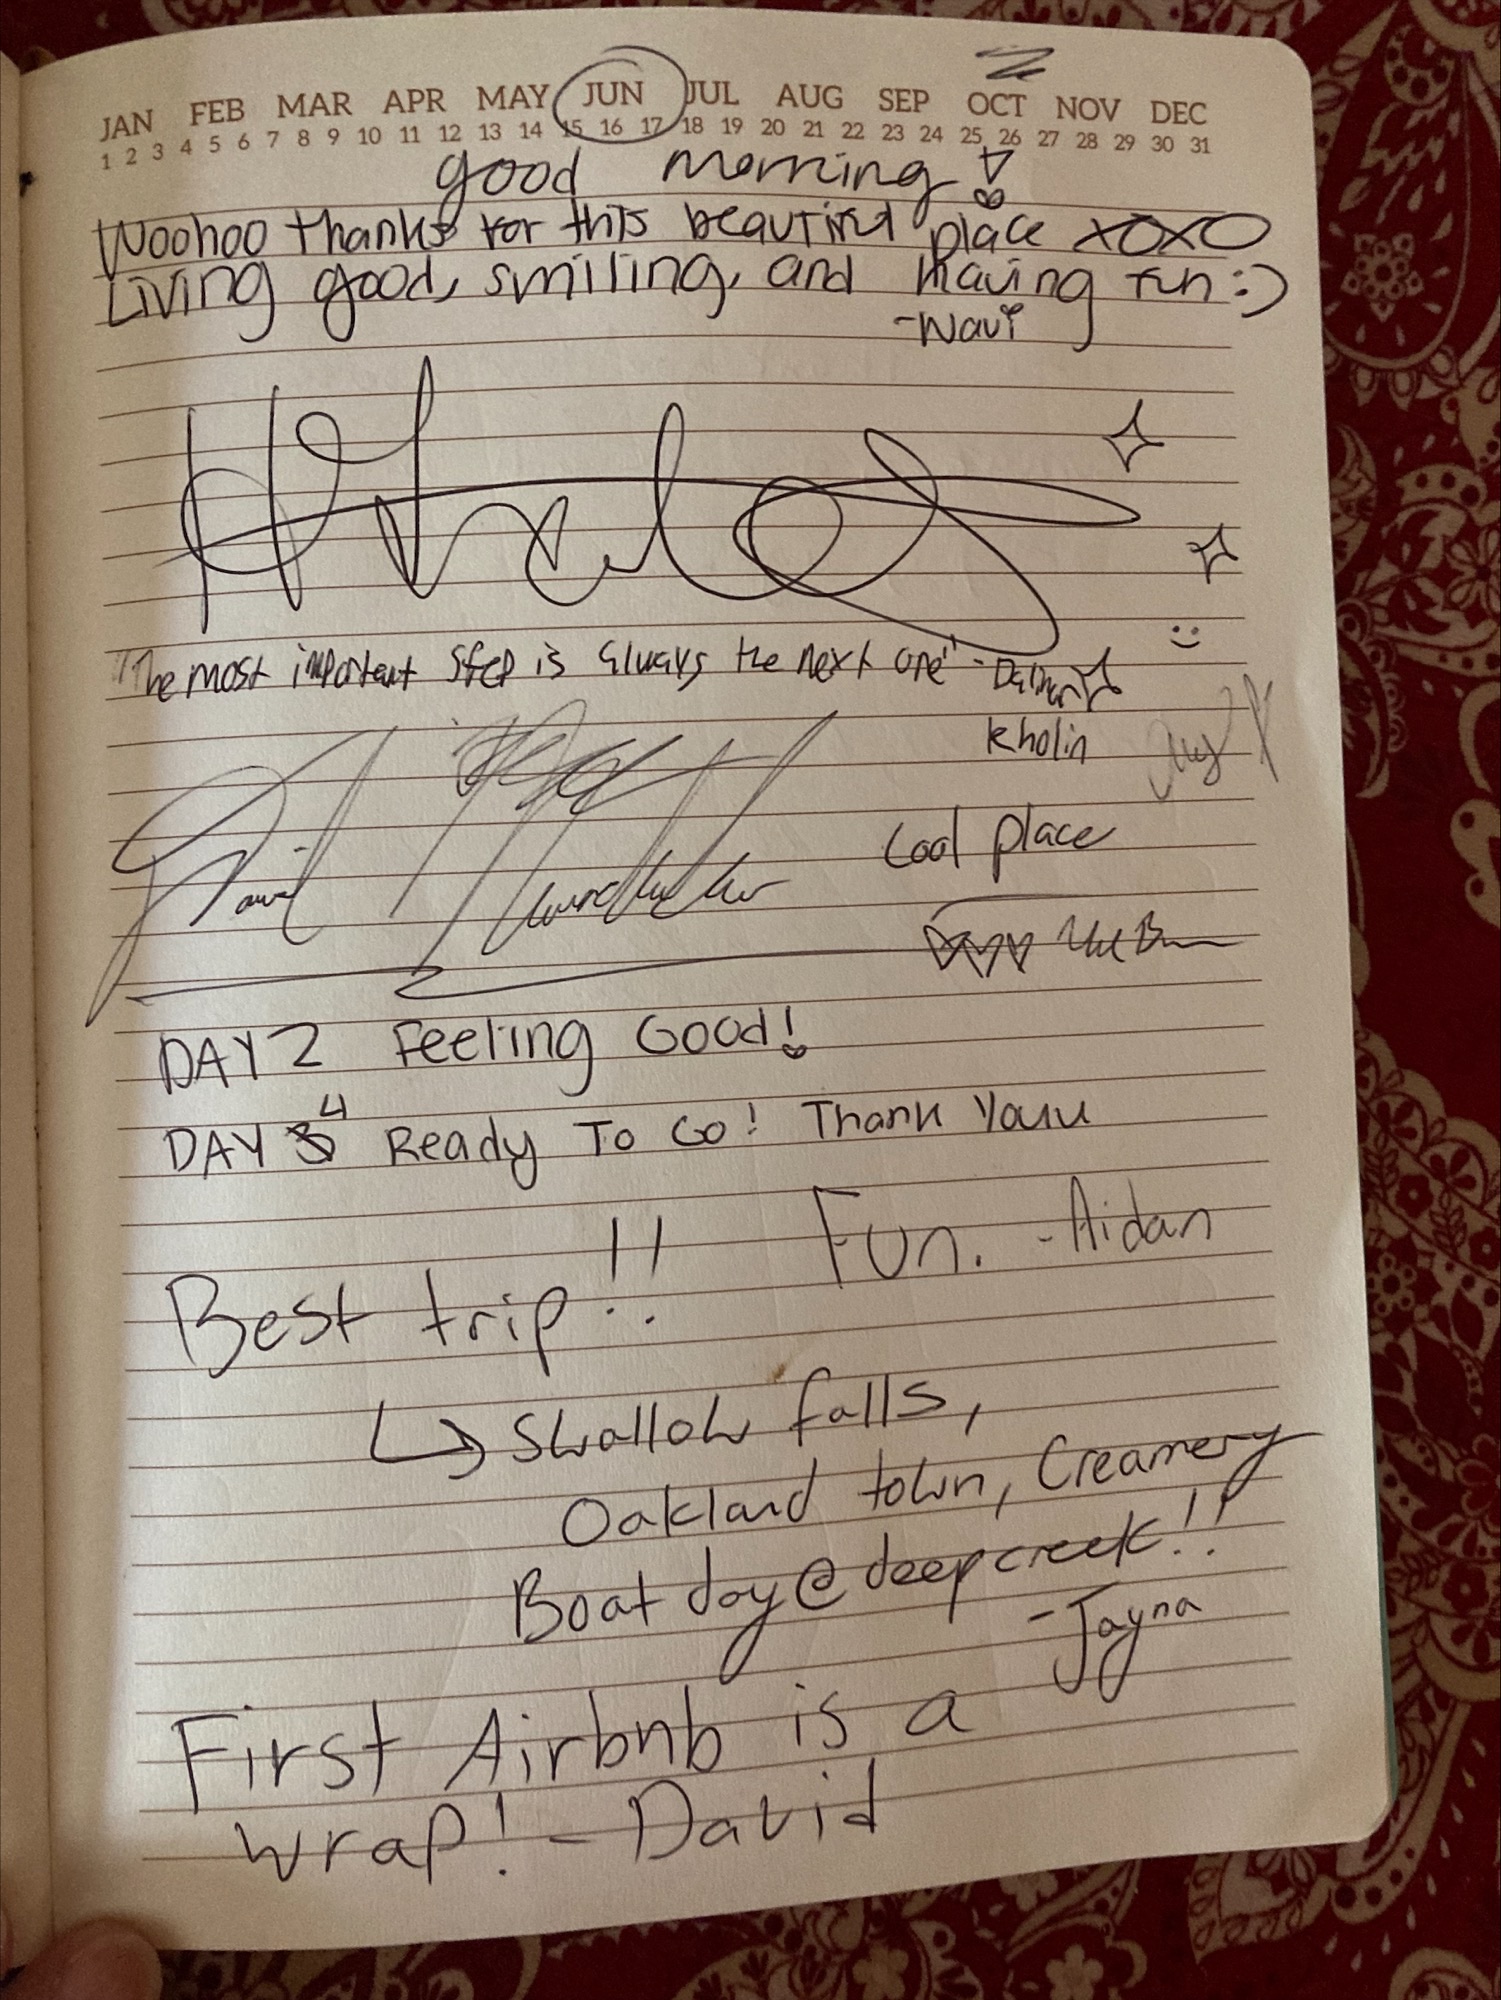 JAN FEB MAR APR MAY JUN JUL AUG SEP OCT NOV DEC
1 2 3 4 5 6 7 8 9 10 11 12 13 14 15 16 17 18 19 20 21 22 23 24 25 26 27 28 29 30 31
good morning!
Woohoo thanks for this beautiful place xoxo
Living good, smiling, and having fun :)
-Navi
:)
"The most important step is always the next one" - Dalinar
Kholin
Cool place
DAY 2 Feeling Good!
DAY 4 Ready To Go! Thank Youu
Fun. - Aidan
Best trip!!
↳ Swallow falls,
Oakland town, Creamery
Boat day @ deepcreek!!
- Jayna
First Airbnb is a
wrap! - David